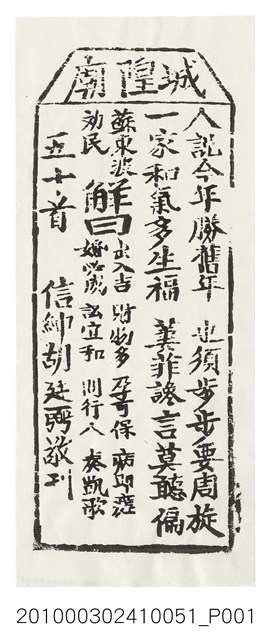 城隍廟
人說今年勝舊年 也須步步要周旋
一家和氣多生福 萋菲讒言莫聽偏
蘇東坡
効民
解曰
出入吉 財物多 孕可保 病即瘥
婚必成 訟宜和 問行人 奏凱歌
五十首 信紳胡廷聘敬刊
201000302410051_P001